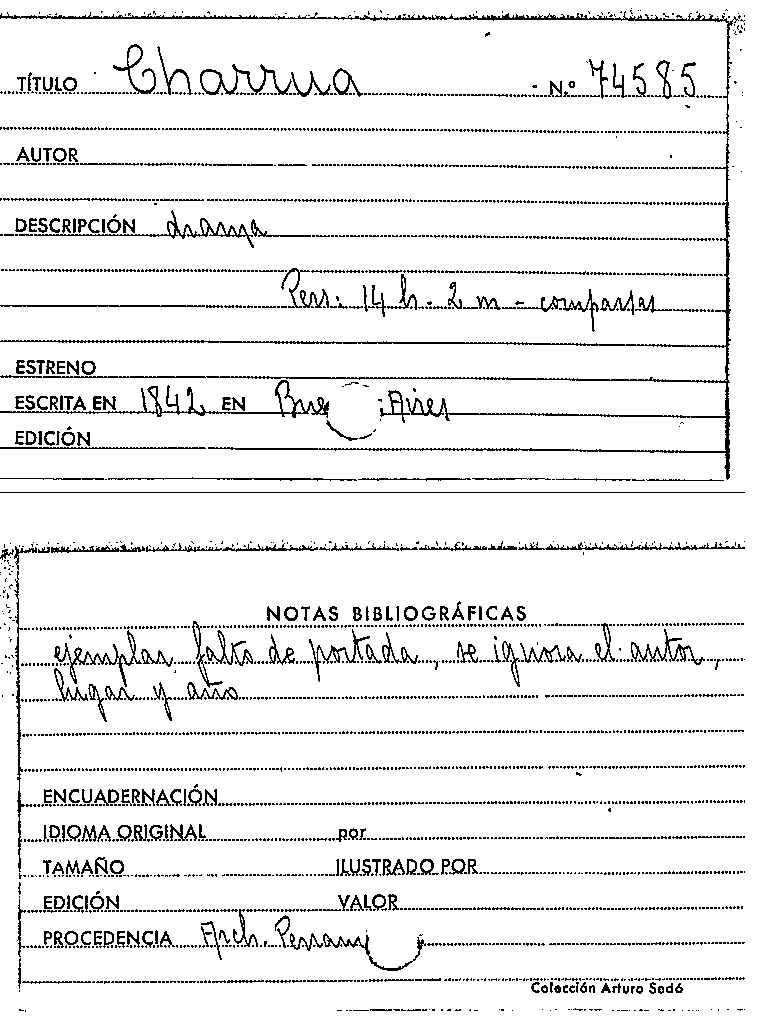 TÍTULO Charrua N.º 74585
AUTOR
DESCRIPCIÓN drama
Pers: 14 h. 2 m - comparsas
ESTRENO
ESCRITA EN 1842 EN Bue Aires
EDICIÓN
NOTAS BIBLIOGRÁFICAS
ejemplar falto de portada, se ignora el autor,
lugar y año
ENCUADERNACIÓN
IDIOMA ORIGINAL por
TAMAÑO ILUSTRADO POR
EDICIÓN VALOR
PROCEDENCIA Arch.
Colección Arturo Sedó